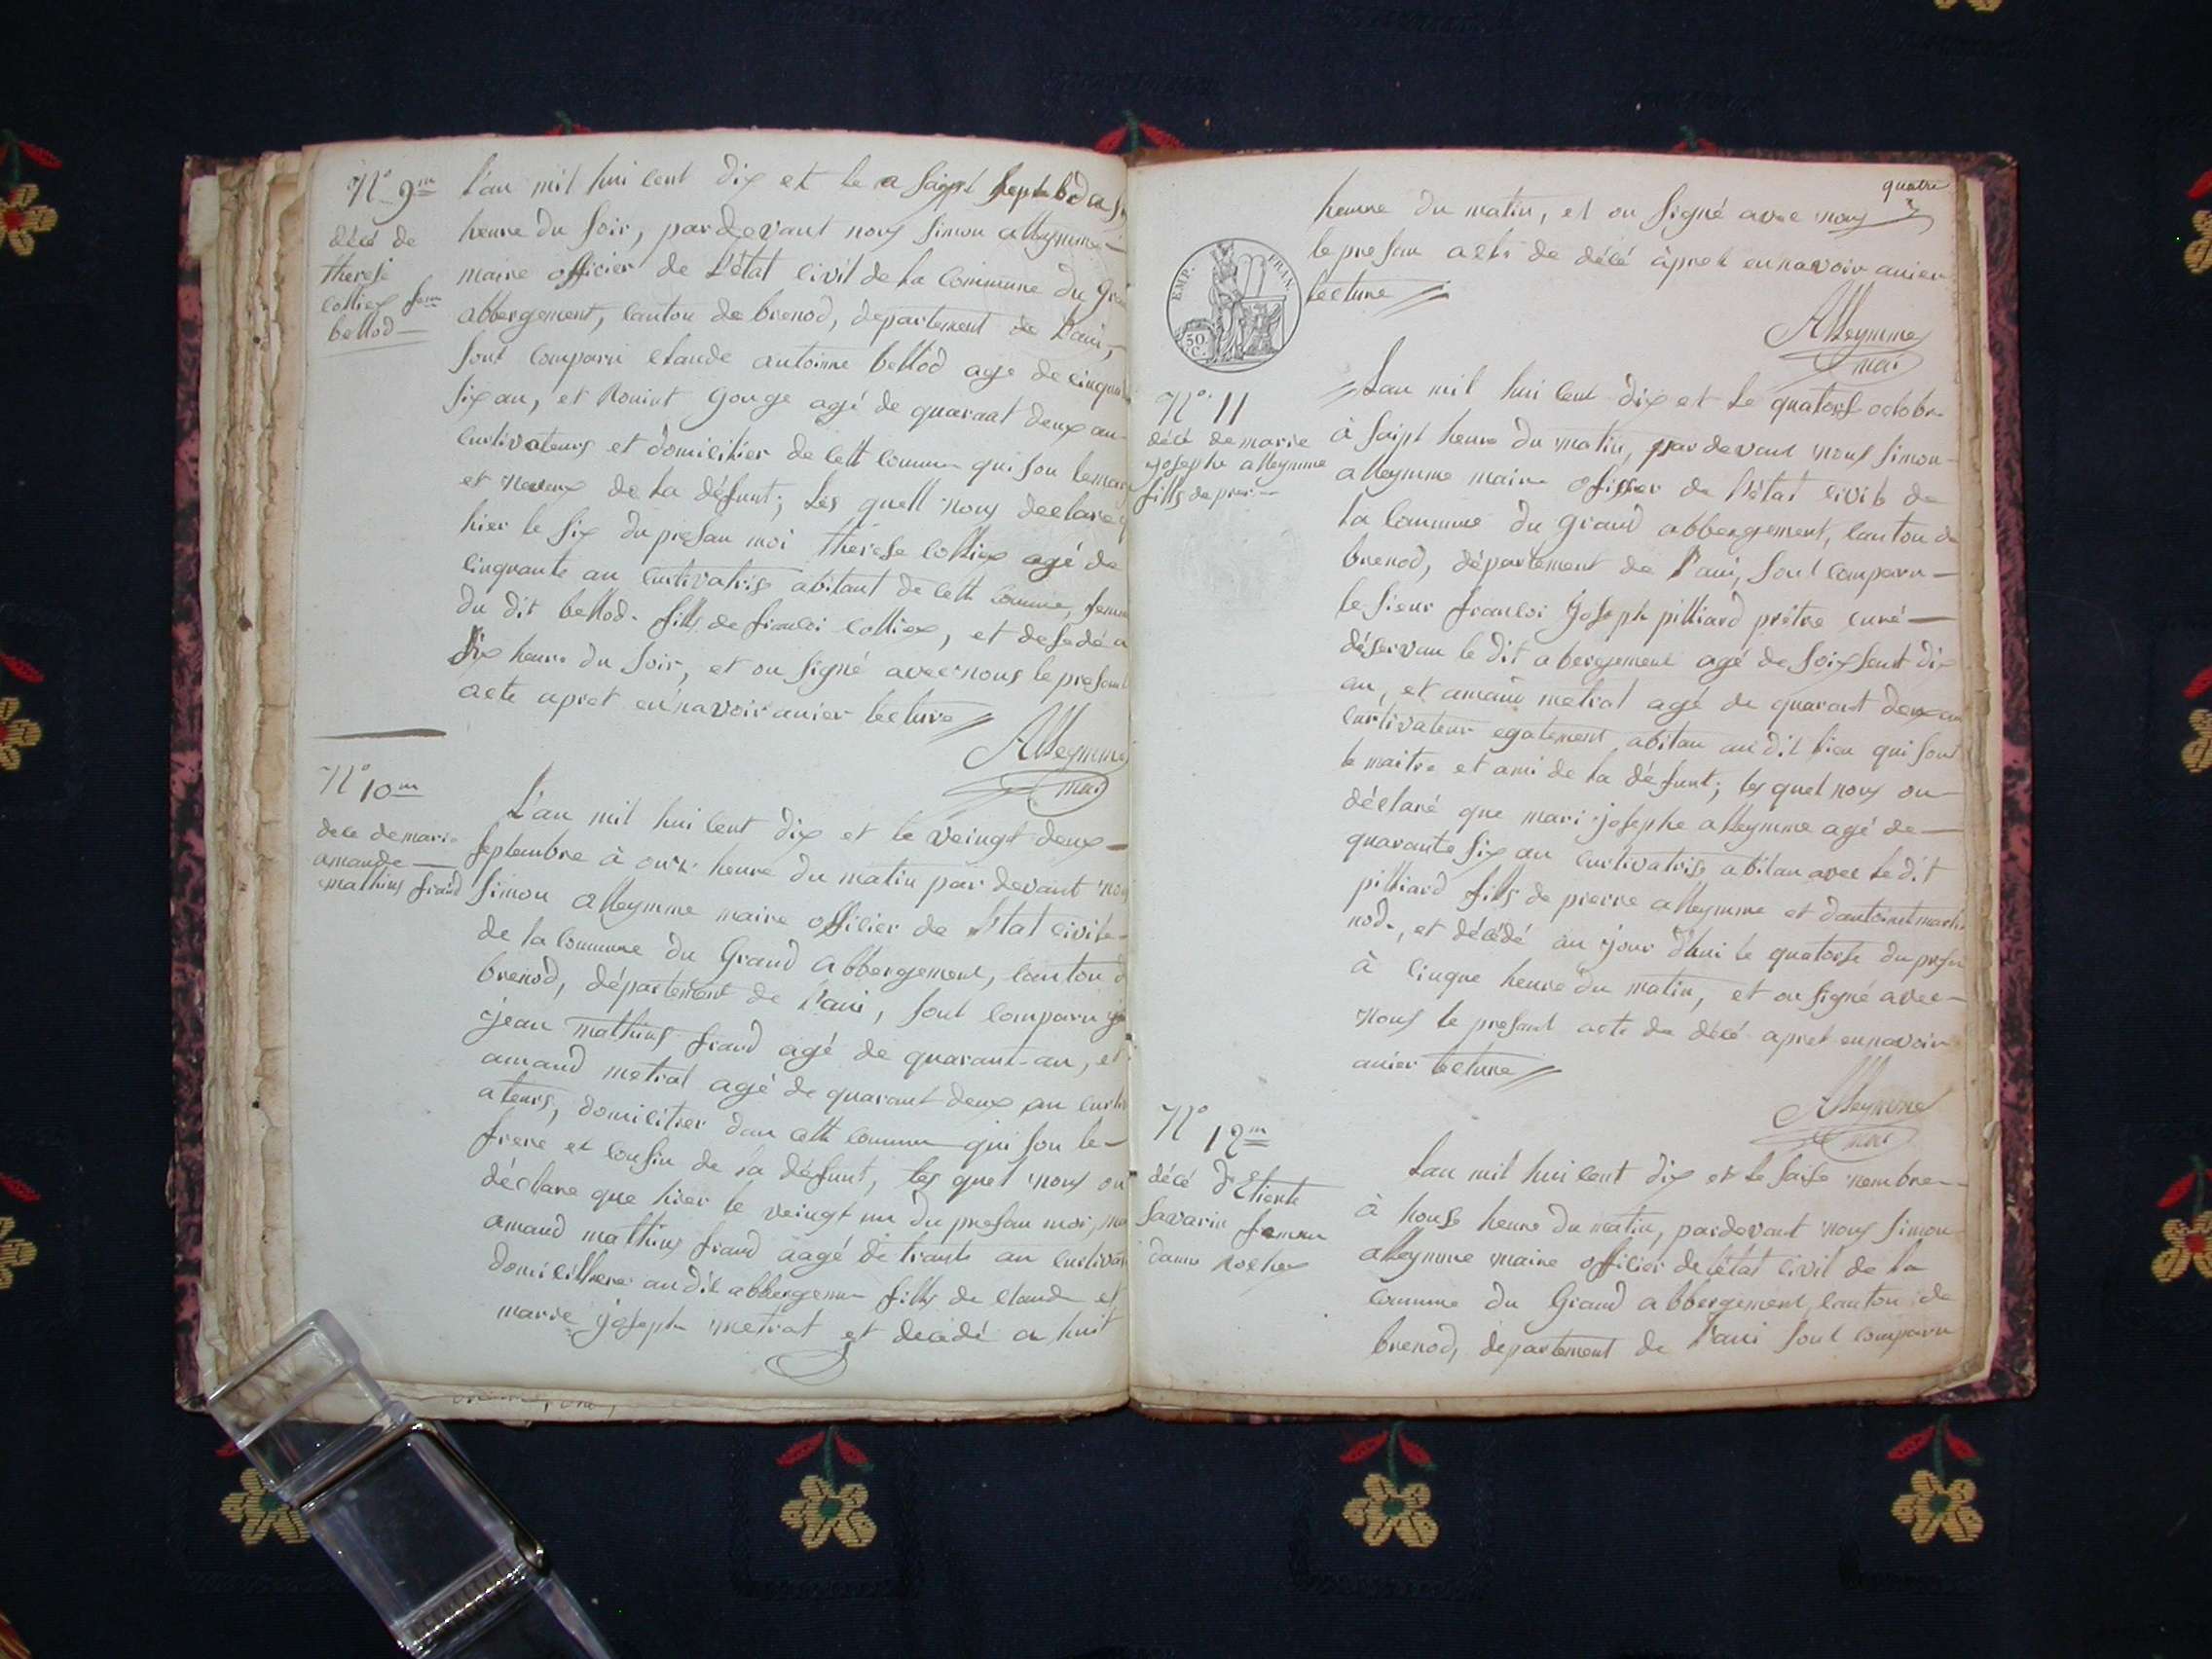 N.o 9m
décé de
therese
colliex fem
bellod
L'an mil hui cent dix et le a saipt septbe
heure du soir, pardevant nous simon alleymme
maire officier de L'état civil de la commune du
abbergement, canton de brenod, departement de l'ain,
sont comparu claude antoinne bellod age de
six an, et gouge agé de quarant deux an
curtivateurs et domicilier de cett commun qui son
et neveux de la défunt; Les quell nous declare
hier le six du presan moi therese colliex agé de
cinquante an curtivatris abitant de cett comune, femme
du dit bellod. fills de francoi colliex, et desedé a
six heure du soir, et on signé avec nous le presant
acte apret en navoir anier lecture
Alleymme
mai
N.o 10m
dece de mari
amande
mathieus fraud
L'an mil hui cent dix et le veingt deux
septembre à onze heure du matin par devant
simon alleymme maire officier de l'état civile
de la commune du Grand abbergement, canton
brenod, département de l'ain, sont comparu
jean mathieus fraud agé de quarant-an, et
amand metral agé de quarant deux an
ateurs, domicilier dan cett commun qui son le
frere et cousin de la défunt, les quel nous on
déclare que hier le veingt un du presan moi,
amand mathieus fraud aagé de trante an
domicilliere au dit abbergemen fills de claude et
marie joseph metral et decédé a huit
quatre
heure du matin, et on signé avec nous
EMP. FRAN.
50 C.
le presan acte de décé àpret en navoir anier
lecture
Alleymme
mai
N.o 11
décé de marie
josephe alleymme
fills de
Lan mil hui cent dix et le quatorse octobre
à saipt heure du matin, par devant nous simon
alleymme maire oficier de l'état civile de
la commune du grand abbergement, canton de
brenod, département de l'ain, sont comparu
le sieur francoi joseph pilliard prêtre curé
déservan le dit abergement agé de soixsent dix
an, et amand metral agé de quarant deux an
curtivateur egalement abitan au dit lieu qui sont
le maitre et ami de la défunt; les quel nous on
déclaré que mari josephe alleymme agé de
quarante six an curtivatris abitan avec le dit
pilliard fills de pierre alleymme et dantoinet
nod, et décédé au jour d'hui le quatorse du
à cinque heure du matin, et on signé avec
nous le presant acte de décé apret en navoir
anier lecture
Alleymme
mai
N.o 12m
décé
savarin femme
Lan mil hui cent dix et le saise
à honse heure du matin, pardevant nous simon
alleymme maire officier de l'état civil de la
commune du Grand abbergement, canton de
brenod, département de l'ain sont comparu